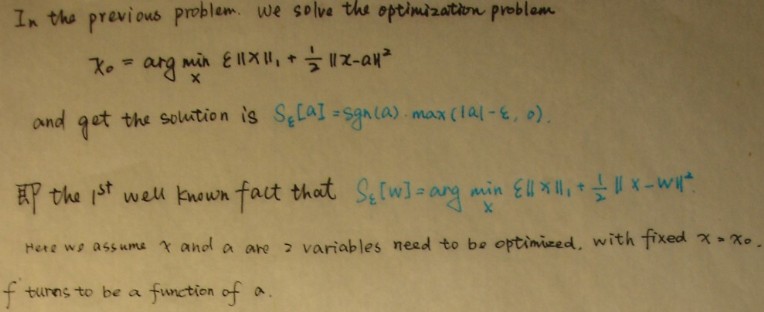 In the previous problem. we solve the optimization problem
x₀ = arg min_x ε||x||₁ + ½ ||x-a||²
and get the solution is S_ε[a] = sgn(a)·max(|a|-ε, 0).
即 the 1st well known fact that S_ε[w] = arg min_x ε||x||₁ + ½ ||x-w||².
Here we assume x and a are 2 variables need to be optimized, with fixed x = x₀.
f turns to be a function of a.